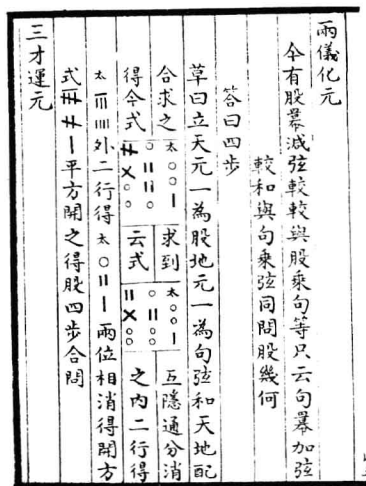 兩儀化元
今有股冪減弦較較與股乘句等只云句冪加弦
較和與句乘弦同問股幾何
答曰四步
草曰立天元一為股地元一為句弦和天地配
合求之 求到 互隱通分消
得今式 云式 之內二行得
太 外二行得太○〢〡兩位相消得開方
式 平方開之得股四步合問
三才運元